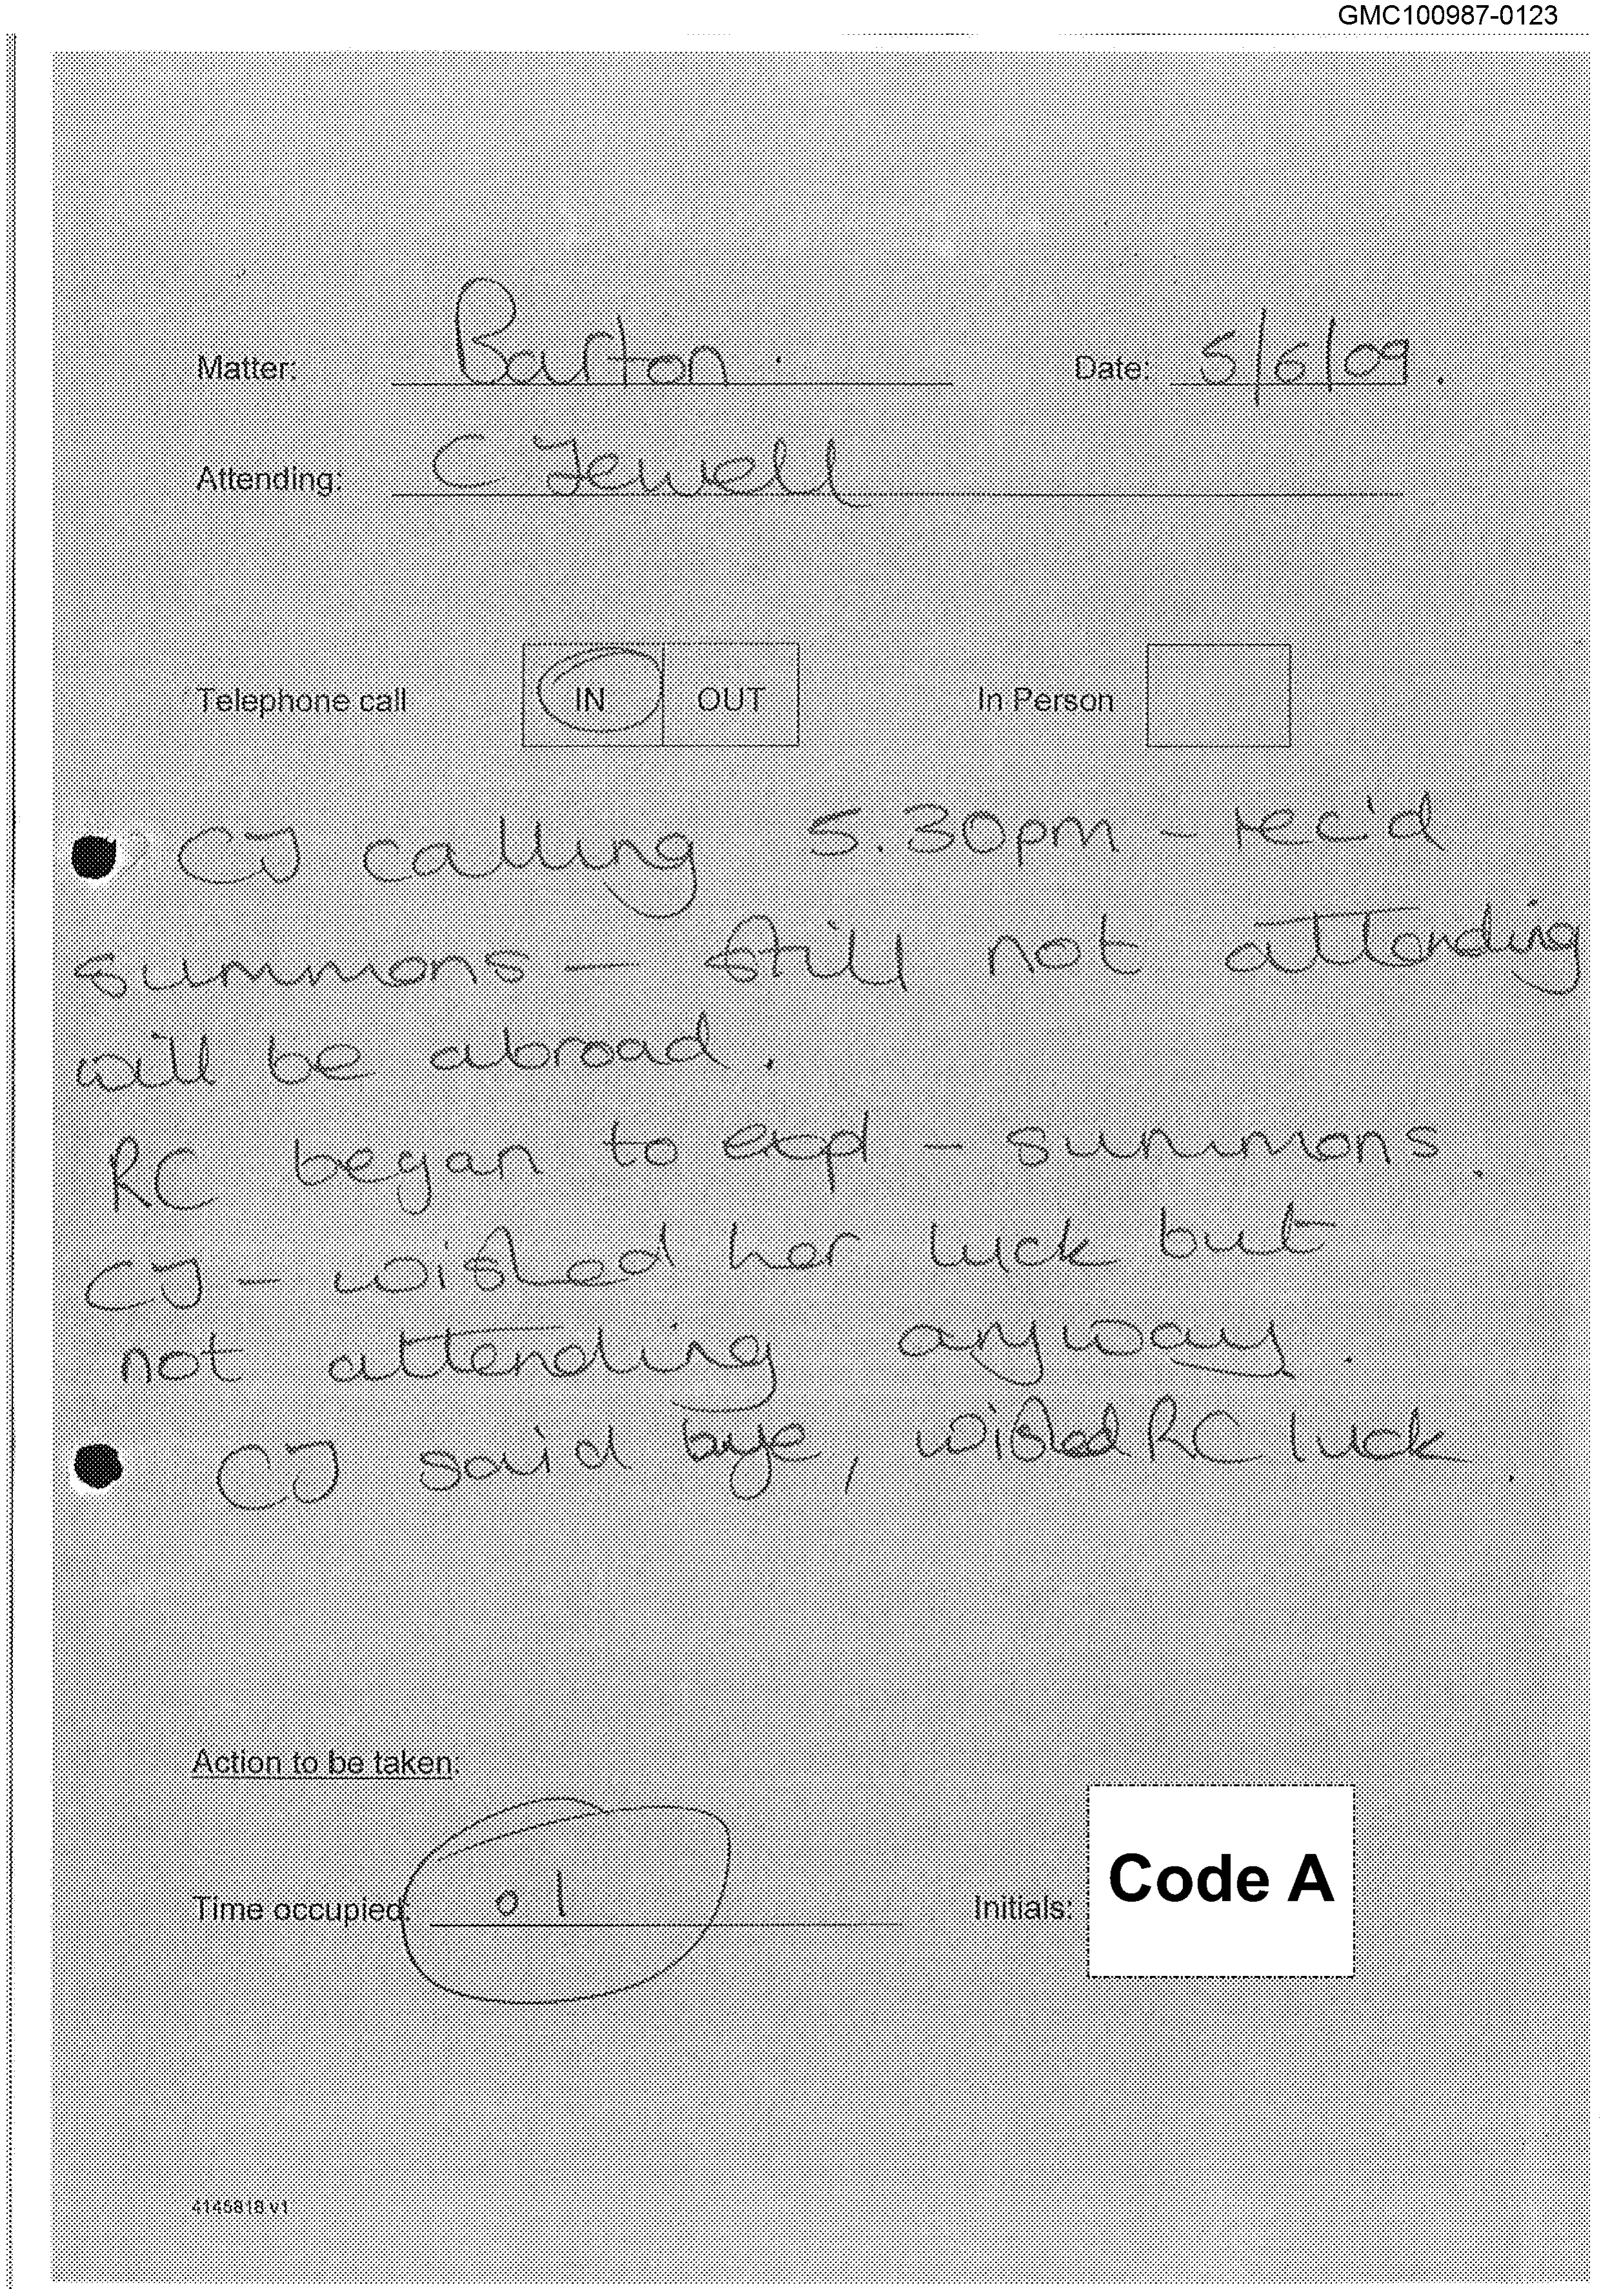 GMC100987-0123
Matter: Barton. Date: 5/6/09.
Attending: C Jewell
Telephone call IN OUT In Person
CJ calling 5.30pm - rec'd
summons - still not attending
will be abroad.
RC began to expl - summons.
CJ - wished her luck but
not attending anyway.
CJ said bye, wished RC luck.
Action to be taken:
Time occupied: 01 Initials: Code A
4145818 v1